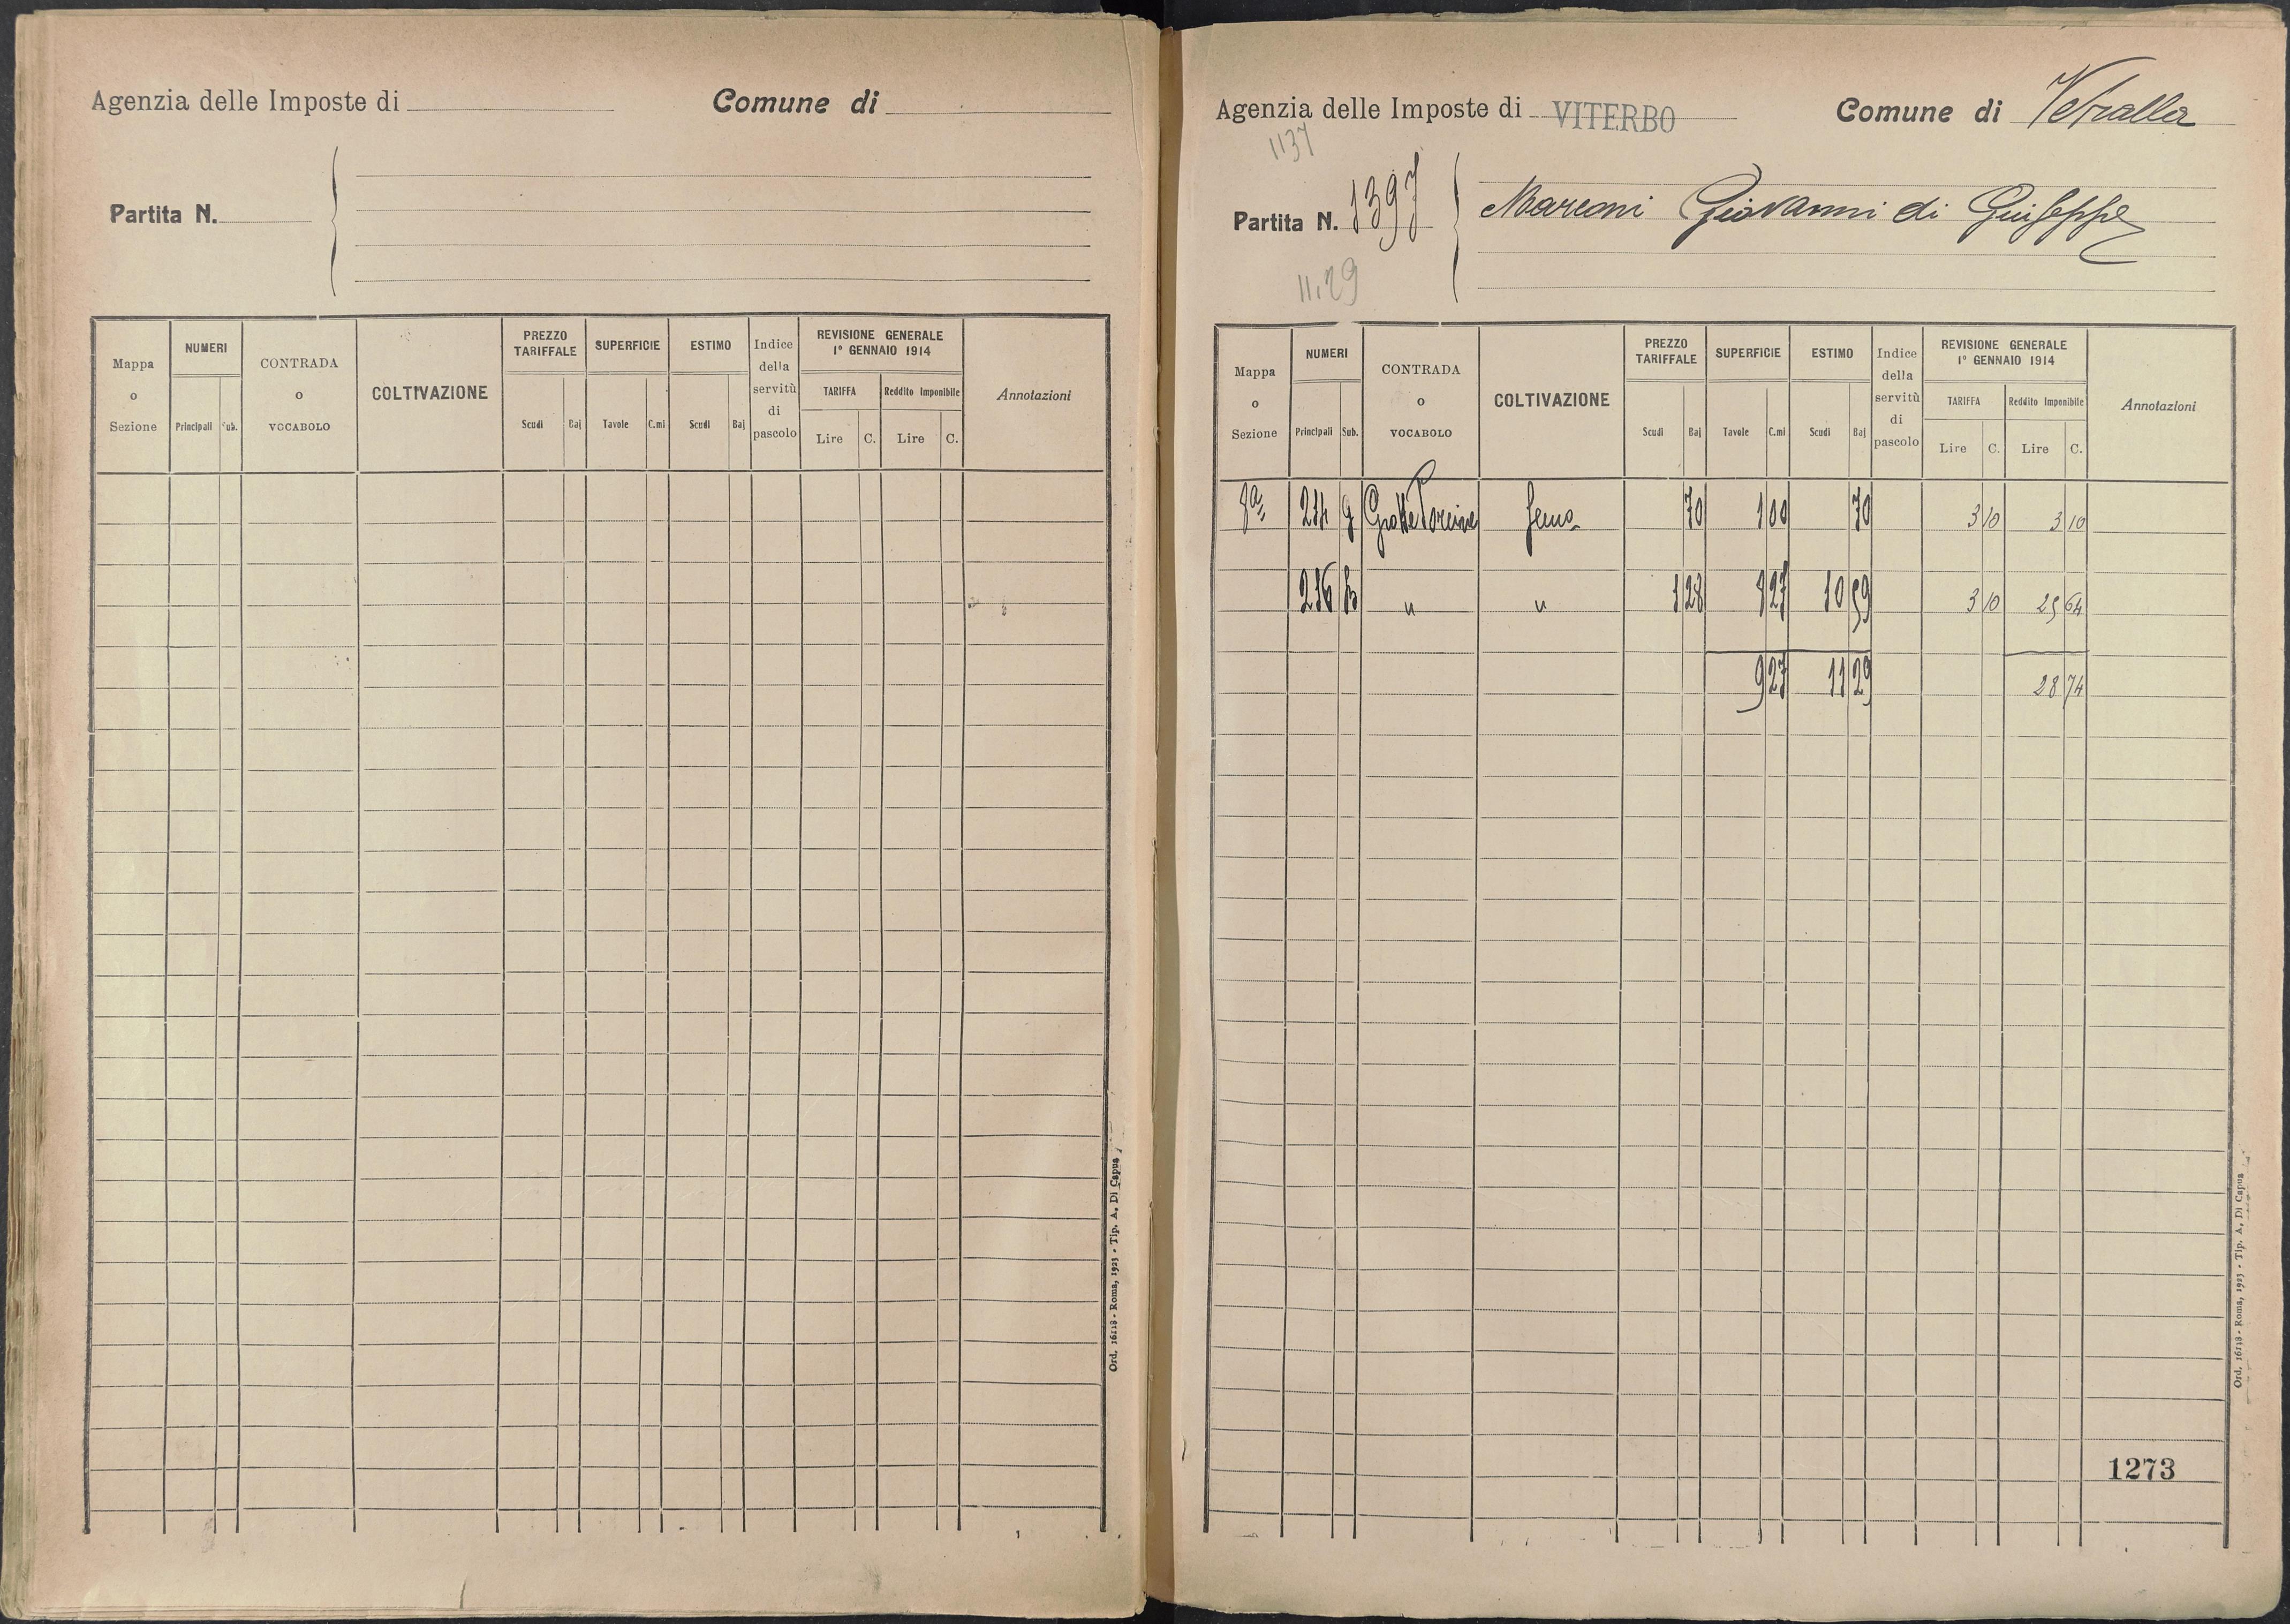 Agenzia delle Imposte di
Comune di
Partita N.
Mappa o Sezione
NUMERI
Principali Sub.
CONTRADA o VOCABOLO
COLTIVAZIONE
PREZZO TARIFFALE
Scudi Baj
SUPERFICIE
Tavole C.mi
ESTIMO
Scudi Baj
Indice della servitù di pascolo
REVISIONE GENERALE
1° GENNAIO 1914
TARIFFA Reddito Imponibile
Lire C. Lire C.
Annotazioni
Ord. 16118 - Roma, 1923 - Tip. A. Di Capua
Agenzia delle Imposte di VITERBO
Comune di Vetralla
1137
Partita N. 1397
Marconi Giovanni di Giuseppe
11.29
Mappa o Sezione
NUMERI
Principali Sub.
CONTRADA o VOCABOLO
COLTIVAZIONE
PREZZO TARIFFALE
Scudi Baj
SUPERFICIE
Tavole C.mi
ESTIMO
Scudi Baj
Indice della servitù di pascolo
REVISIONE GENERALE
1° GENNAIO 1914
TARIFFA Reddito Imponibile
Lire C. Lire C.
Annotazioni
8ª 214 Grotte Porcine 70 1 00 70 3 10 3 10
216 " " 1 28 8 27 10 59 3 10 25 64
9 27 11 29 28 74
1273
Ord. 16118 - Roma, 1923 - Tip. A. Di Capua